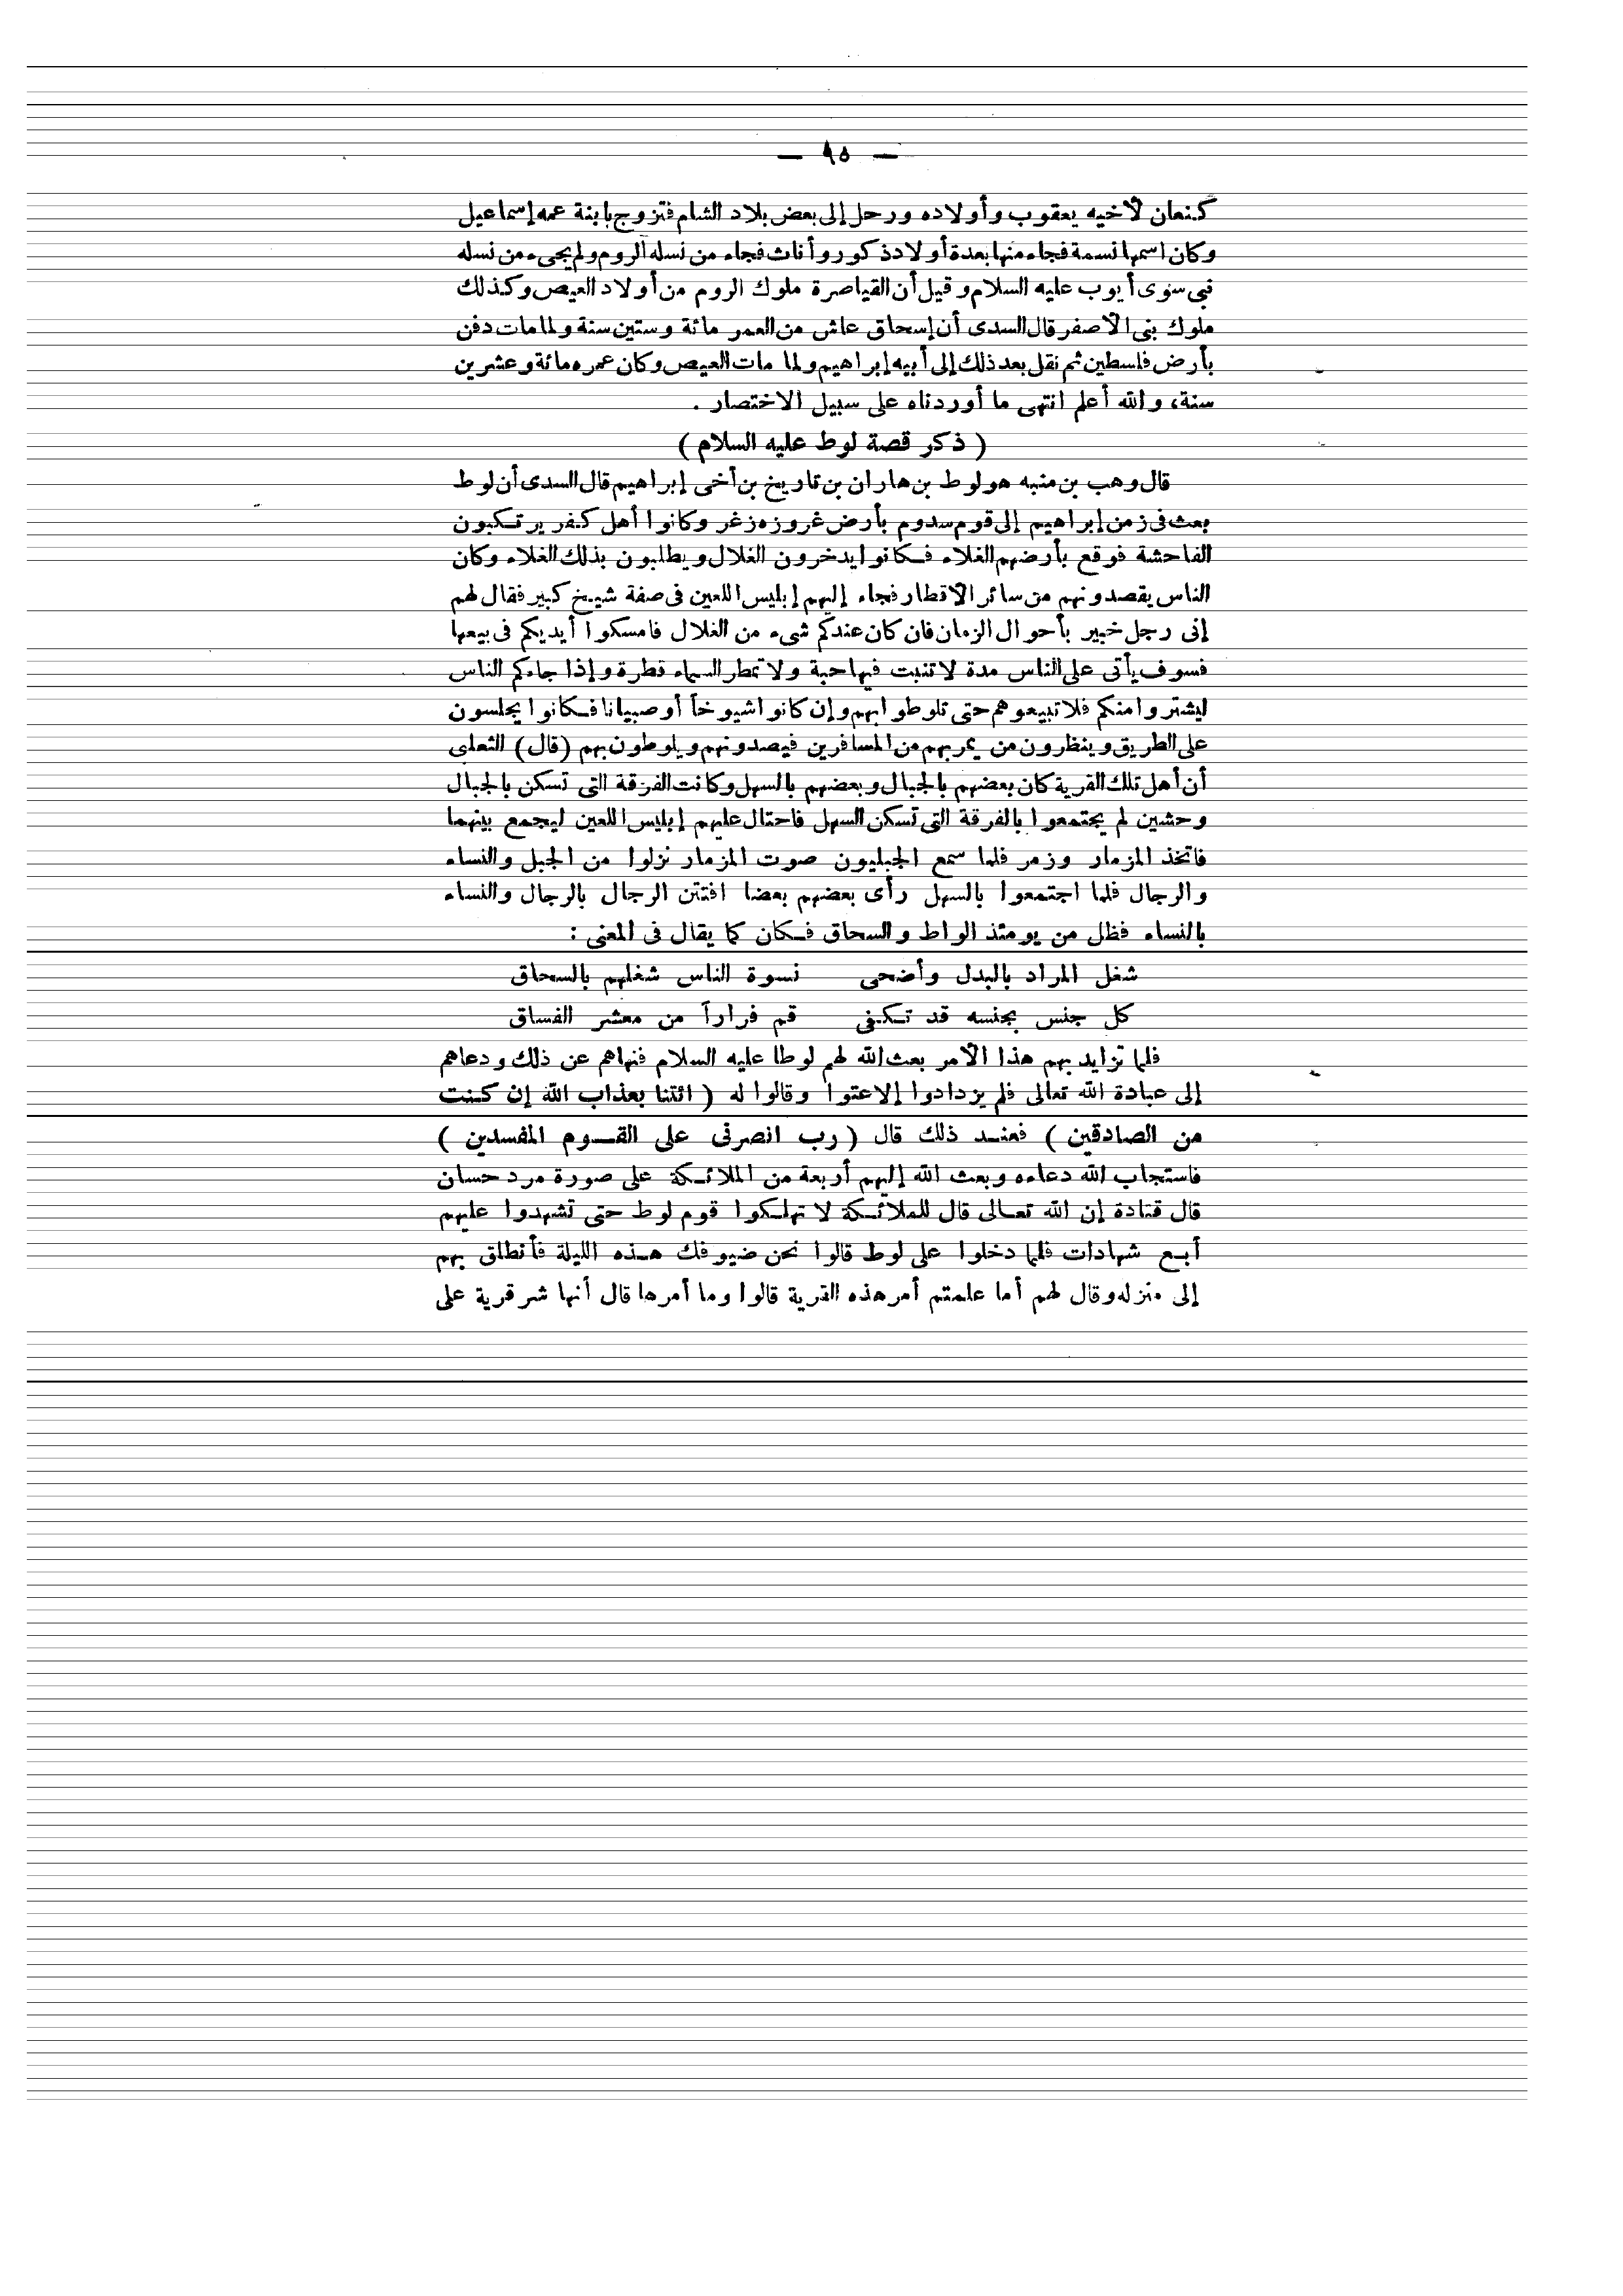 — ٩٥ —
كنعان لأخيه يعقوب وأولاده ورحل إلى بعض بلاد الشام فتزوج بابنة عمه إسماعيل
وكان اسمها نسمة فجاء منها بعدة أولاد ذكور وأناث فجاء من نسله الروم ولم يجىء من نسله
نبى سوى أيوب عليه السلام وقيل أن القياصرة ملوك الروم من أولاد العيص وكذلك
ملوك بنى الأصفر قال السدى أن إسحاق عاش من العمر مائة وستين سنة ولما مات دفن
بأرض فلسطين ثم نقل بعد ذلك إلى أبيه إبراهيم ولما مات العيص وكان عمره مائة وعشرين
سنة، والله أعلم انتهى ما أوردناه على سبيل الاختصار .
( ذكر قصة لوط عليه السلام )
قال وهب بن منبه هو لوط بن هاران بن تاريخ بن أخى إبراهيم قال السدى أن لوط
بعث فى زمن إبراهيم إلى قوم سدوم بأرض غروزه زغر وكانوا أهل كفر يرتكبون
الفاحشة فوقع بأرضهم الغلاء فكانوا يدخرون الغلال ويطلبون بذلك الغلاء وكان
الناس يقصدونهم من سائر الأقطار فجاء إليهم إبليس اللعين فى صفة شيخ كبير فقال لهم
إنى رجل خبير بأحوال الزمان فان كان عندكم شىء من الغلال فامسكوا أيديكم فى بيعها
فسوف يأتى على الناس مدة لا تنبت فيها حبة ولا تمطر السماء قطرة وإذا جاءكم الناس
ليشتروا منكم فلا تبيعوهم حتى تلوطوا بهم وإن كانوا شيوخاً أو صبيانا فكانوا يجلسون
على الطريق وينظرون من يمر بهم من المسافرين فيصدونهم ويلوطون بهم (قال) الثعلبى
أن أهل تلك القرية كان بعضهم بالجبال وبعضهم بالسهل وكانت الفرقة التى تسكن بالجبال
وحشين لم يجتمعوا بالفرقة التى تسكن السهل فاحتال عليهم إبليس اللعين ليجمع بينهما
فاتخذ المزمار وزمر فلما سمع الجبليون صوت المزمار نزلوا من الجبل والنساء
والرجال فلما اجتمعوا بالسهل رأى بعضهم بعضا افتتن الرجال بالرجال والنساء
بالنساء فظل من يومئذ الواط والسحاق فكان كما يقال فى المعنى :
شغل المراد بالبدل وأضحى نسوة الناس شغلهم بالسحاق
كل جنس بجنسه قد تكفى قم فراراً من معشر الفساق
فلما تزايد بهم هذا الأمر بعث الله لهم لوطا عليه السلام فنهاهم عن ذلك ودعاهم
إلى عبادة الله تعالى فلم يزدادوا إلا عتوا وقالوا له ( ائتنا بعذاب الله إن كنت
من الصادقين ) فعند ذلك قال ( رب انصرنى على القوم المفسدين )
فاستجاب الله دعاءه وبعث الله إليهم أربعة من الملائكة على صورة مرد حسان
قال قتادة إن الله تعالى قال للملائكة لا تهلكوا قوم لوط حتى تشهدوا عليهم
أبع شهادات فلما دخلوا على لوط قالوا نحن ضيوفك هذه الليلة فأنطلق بهم
إلى منزله وقال لهم أما علمتم أمر هذه القرية قالوا وما أمرها قال أنها شر قرية على